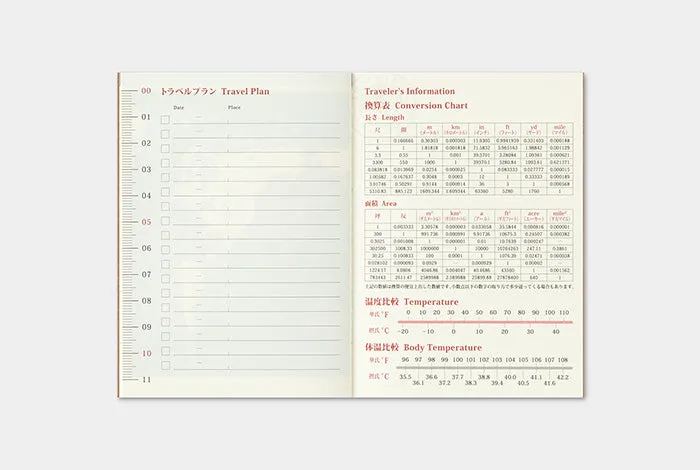 00 トラベルプラン Travel Plan
Date Place
01
02
03
04
05
06
07
08
09
10
11
Traveler's Information
換算表 Conversion Chart
長さ Length
尺 間 m km in ft yd mile
(メートル) (キロメートル) (インチ) (フィート) (ヤード) (マイル)
1 0.166666 0.30303 0.000303 11.9305 0.9941939 0.331403 0.000188
6 1 1.81818 0.001818 71.5832 5.965163 1.98842 0.001129
3.3 0.55 1 0.001 39.3701 3.28084 1.09361 0.000621
3300 550 1000 1 39370.1 3280.84 1093.61 0.621371
0.083818 0.013969 0.0254 0.000025 1 0.083333 0.027777 0.000015
1.00582 0.167637 0.3048 0.0003 12 1 0.33333 0.000189
3.01746 0.50291 0.9144 0.000914 36 3 1 0.000568
5310.83 885.123 1609.344 1.609344 63360 5280 1760 1
面積 Area
坪 反 m² km² a ft² acre mile²
(アール) (エーカー)
1 0.003333 3.30578 0.000003 0.033058 35.5844 0.000816 0.000001
300 1 991.736 0.000991 9.91736 10675.3 0.24507 0.000382
0.3025 0.001008 1 0.000001 0.01 10.7639 0.000247
302500 1008.33 1000000 1 10000 10764263 247.11 0.3861
30.25 0.100833 100 0.0001 1 1076.39 0.02471 0.000038
1224.17 4.0806 4046.86 0.004047 40.4686 43560 1 0.001562
783443 2611.47 2589988 2.589988 25899.88 27878400 640 1
温度比較 Temperature
華氏 °F 0 10 20 30 40 50 60 70 80 90 100 110
摂氏 °C −20 −10 0 10 20 30 40
体温比較 Body Temperature
華氏 °F 96 97 98 99 100 101 102 103 104 105 106 107 108
摂氏 °C 35.5 36.6 37.7 38.8 40.0 41.1 42.2
36.1 37.2 38.3 39.4 40.5 41.6